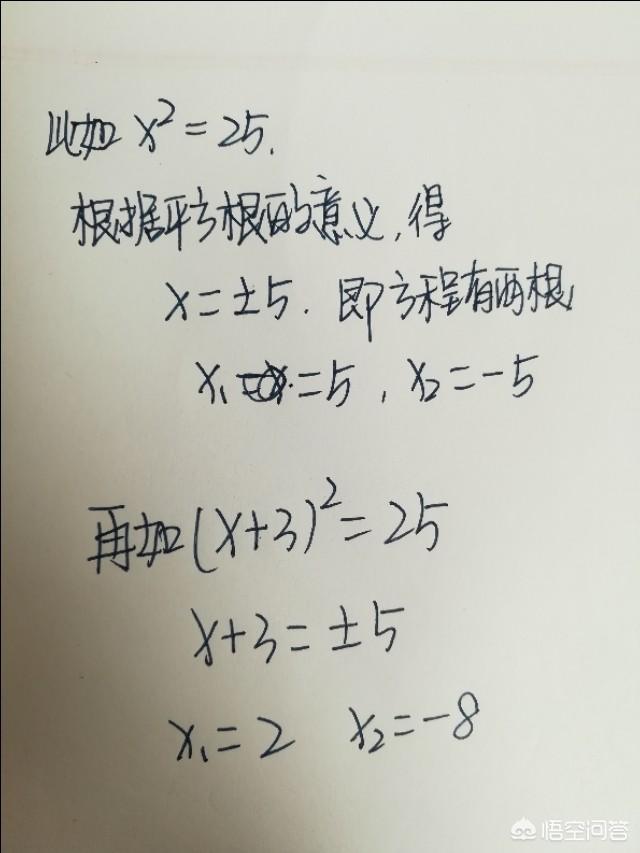 比如 x²=25.
根据平方根的意义,得
x=±5. 即方程有两根,
x₁=5, x₂=-5
再如(x+3)²=25
x+3=±5
x₁=2 x₂=-8
悟空问答